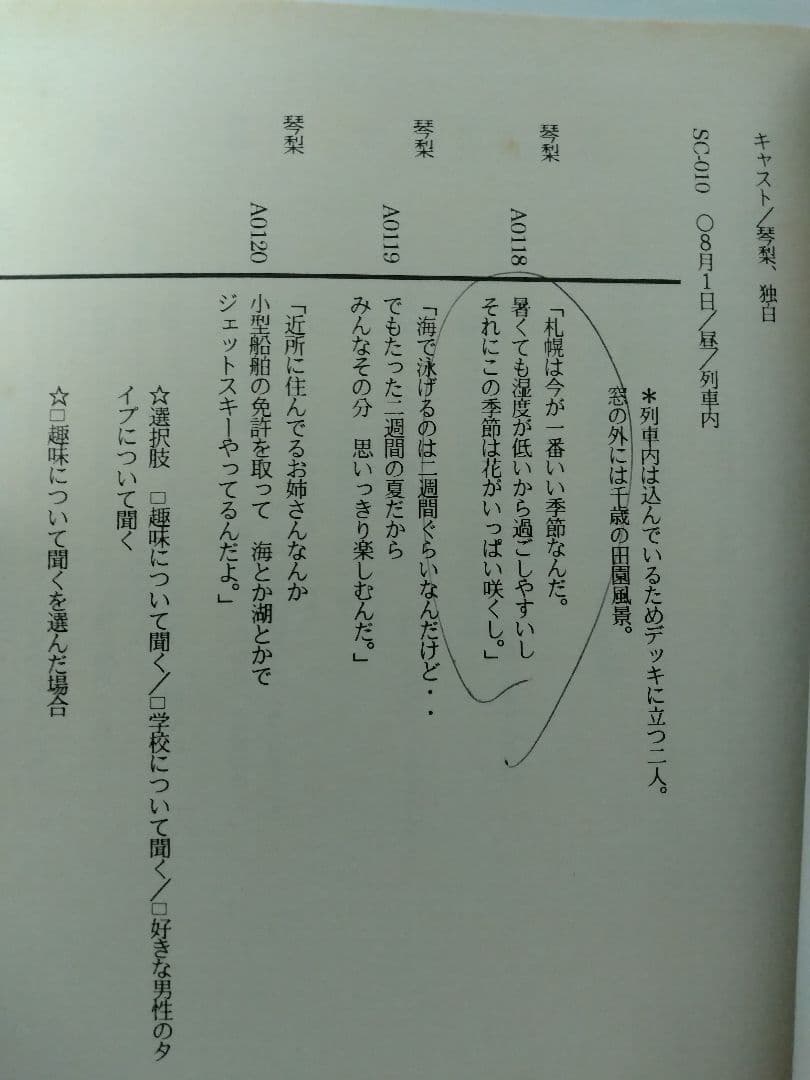 キャスト／琴梨、独白
SC-010　〇8月1日／昼／列車内
＊列車内は込んでいるためデッキに立つ二人。
窓の外には千歳の田園風景。
琴梨　A0118　「札幌は今が一番いい季節なんだ。
暑くても湿度が低いから過ごしやすいし
それにこの季節は花がいっぱい咲くし。」
琴梨　A0119　「海で泳げるのは二週間ぐらいなんだけど・・
でもたった二週間の夏だから
みんなその分　思いっきり楽しむんだ。」
琴梨　A0120　「近所に住んでるお姉さんなんか
小型船舶の免許を取って　海とか湖とかで
ジェットスキーやってるんだよ。」
☆選択肢　□趣味について聞く／□学校について聞く／□好きな男性のタ
イプについて聞く
☆□趣味について聞くを選んだ場合